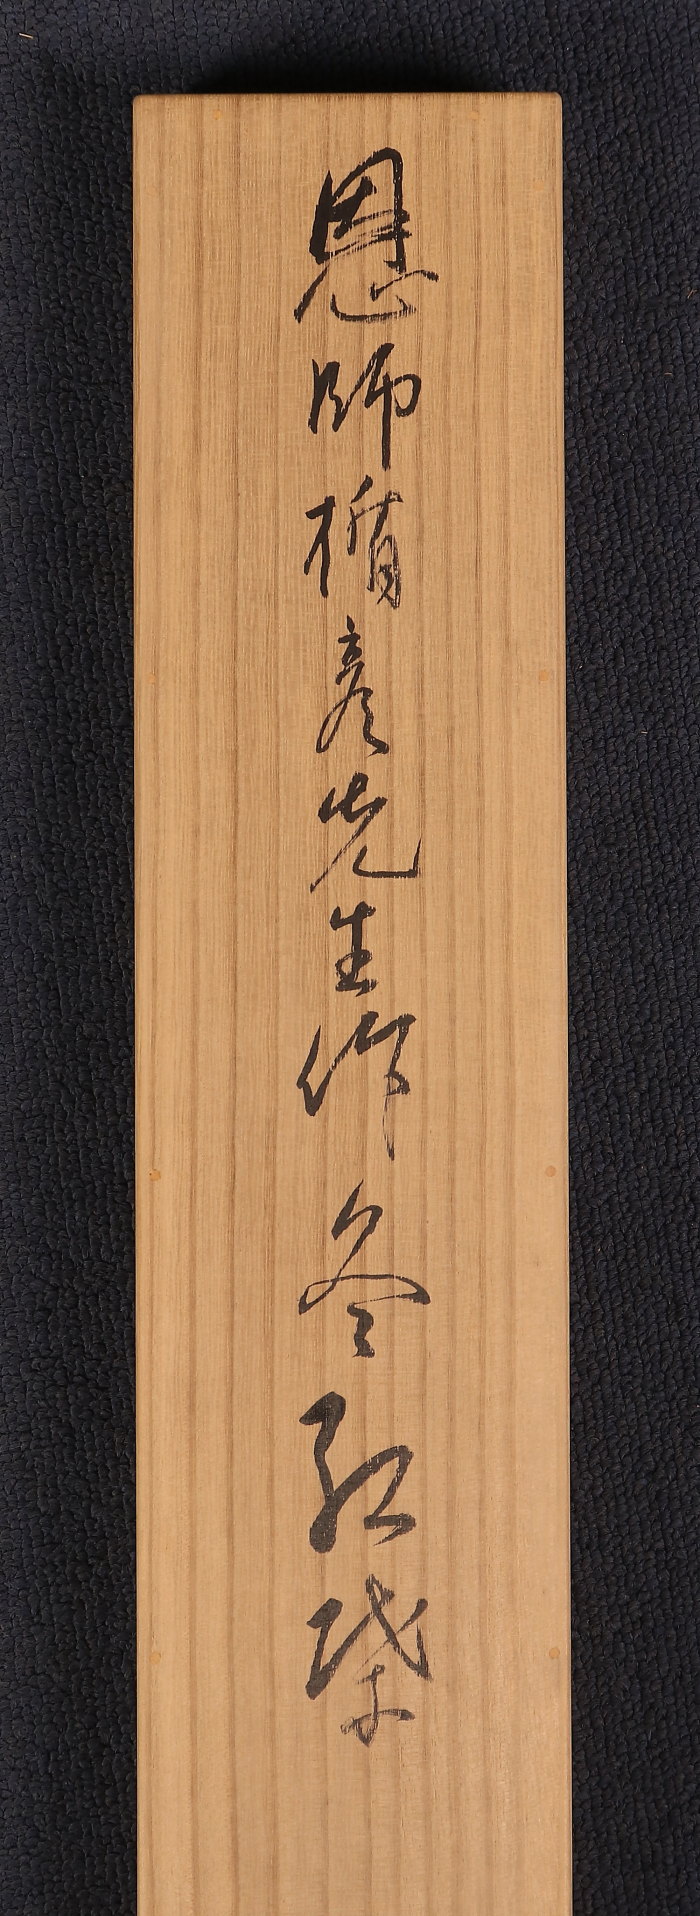 恩師楯彦先生作 冬紅葉